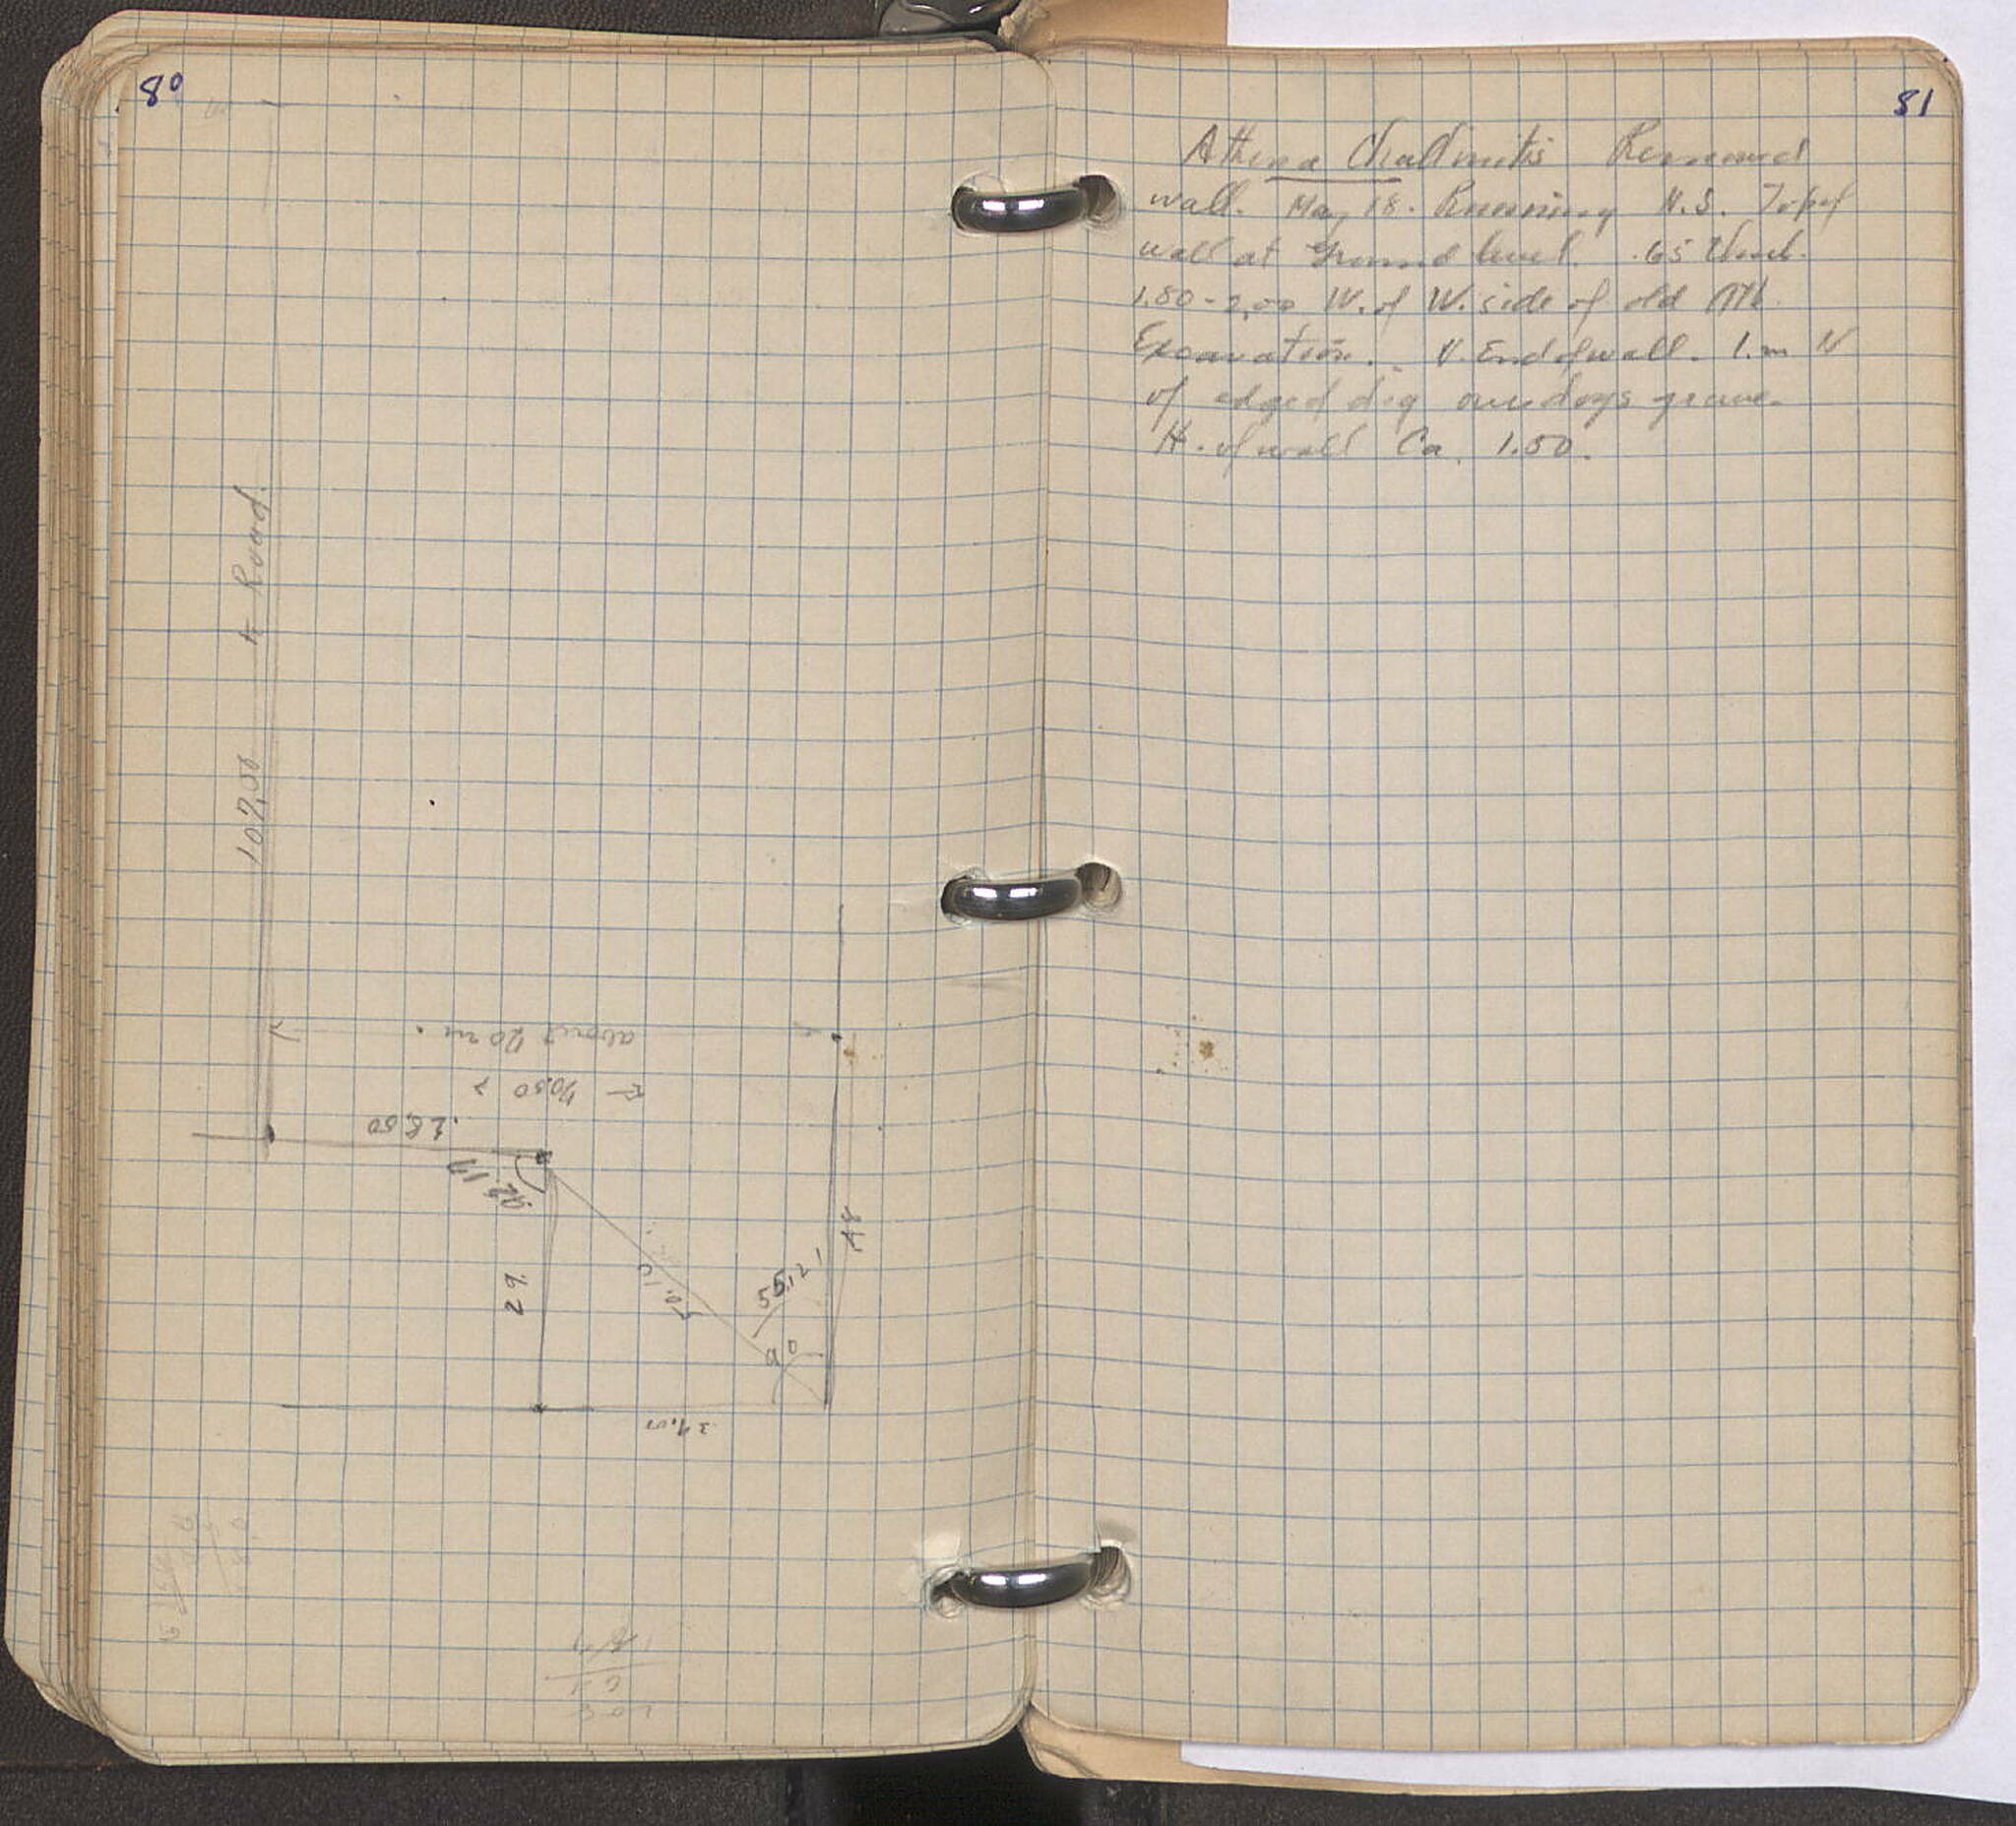 80
107,50 to Road.
about 20 m.
← 70.50 >
28,50
92,17
29.
50,10
55,121
90
48
34,00
81
Athena Chalinitis Removed
wall. May 18. Running N.S. Top of
wall at Ground level. .65 thick.
1.80-2,00 W. of W. side of old Ath.
Excavation. N. End of wall. 1.m N
of edge of dig over dogs grave.
H. of wall Ca. 1.50.